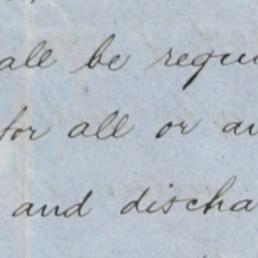 all be requi
for all or an
and discha